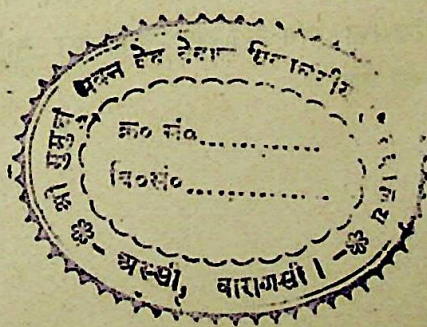 श्री मुमुक्षु भवन वेद वेदाङ्ग
क्र० सं०..............
वि०सं०................
अस्सी, वाराणसी।